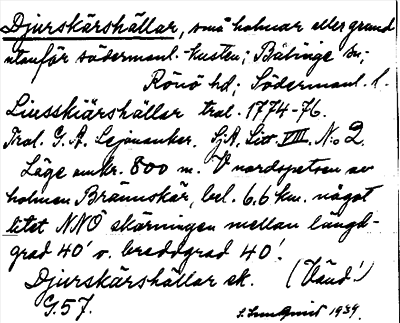 Djurskärshällar, små holmar eller grund
utanför södermanl. kusten; Bälinge sn;
Rönö hd; Södermanl. l.
Liusskiärshällar tral. 1774-76.
Tral. G. A. Lejonanker. SjA. Litt. VIII. No 2.
Läge omkr. 800 m. V nordspetsen av
holmen Brännskär, bel. 6,6 km. något
litet NNÖ skärningen mellan längd-
grad 40' o. breddgrad 40'.
Djurskärshällar ek. (Vänd!)
G. 57.
1939